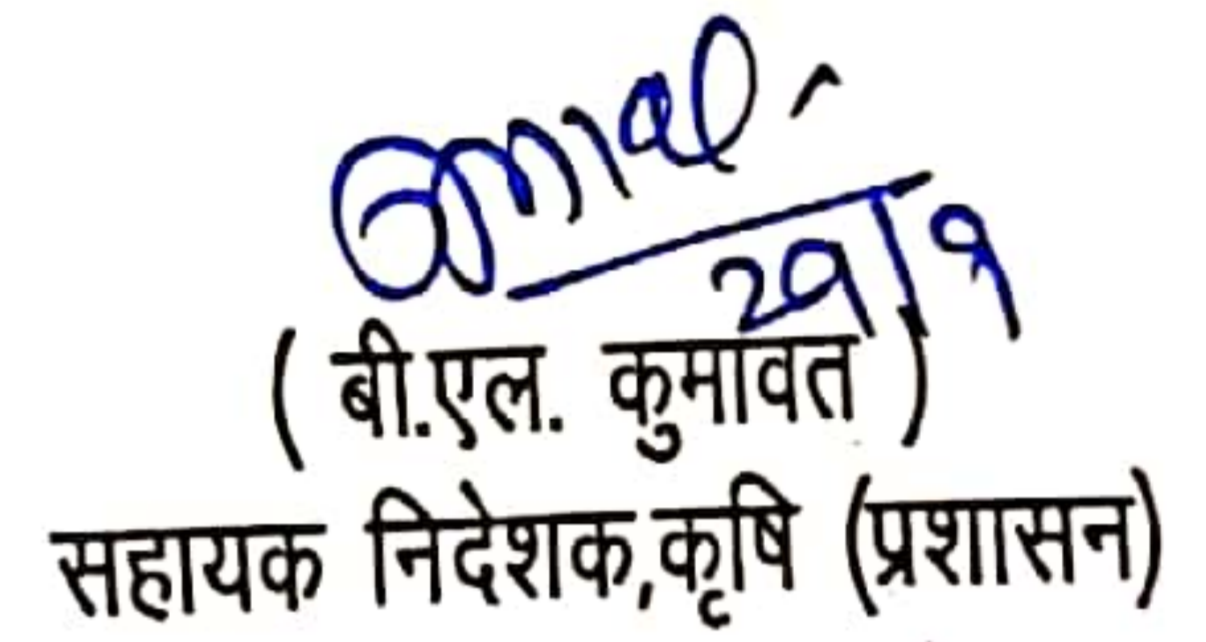 29/9
( बी.एल. कुमावत )
सहायक निदेशक,कृषि (प्रशासन)